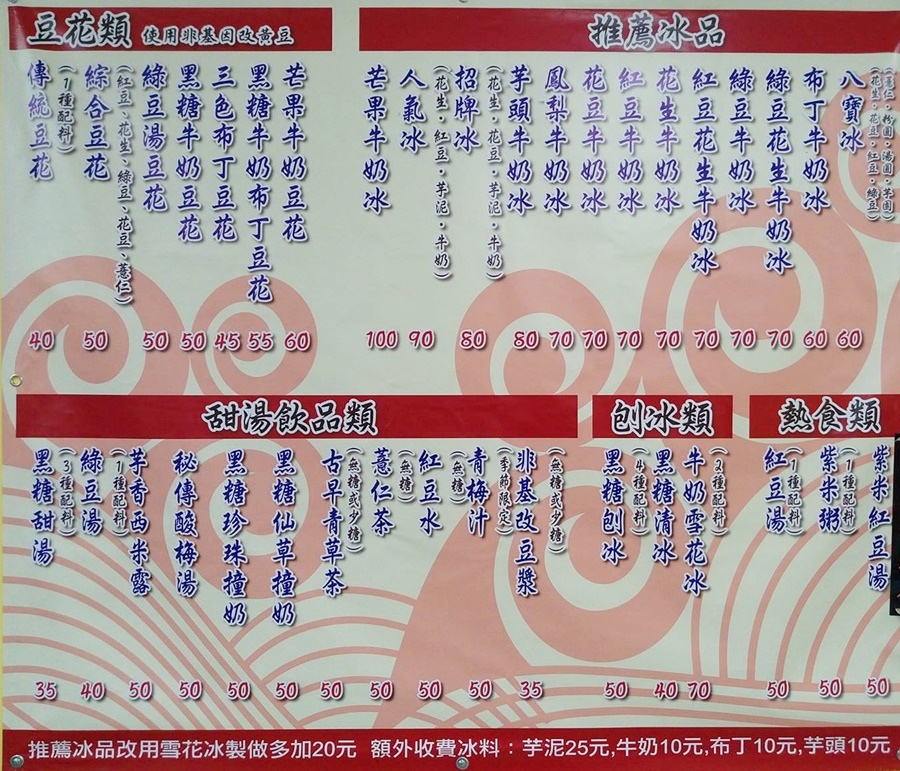 豆花類 使用非基因改黃豆
傳統豆花
(1種配料)
40
綜合豆花
(紅豆、花生、綠豆、花豆、薏仁)
50
綠豆湯豆花
50
黑糖牛奶豆花
50
三色布丁豆花
45
黑糖牛奶布丁豆花
55
芒果牛奶豆花
60
推薦冰品
芒果牛奶冰
100
人氣冰
(花生・紅豆・芋泥・牛奶)
90
招牌冰
(花生・花豆・芋泥・牛奶)
80
芋頭牛奶冰
80
鳳梨牛奶冰
70
花豆牛奶冰
70
紅豆牛奶冰
70
花生牛奶冰
70
紅豆花生牛奶冰
70
綠豆牛奶冰
70
綠豆花生牛奶冰
70
布丁牛奶冰
60
八寶冰
(薏仁・粉圓・湯圓・芋圓)
(花生・花豆・紅豆・綠豆)
60
甜湯飲品類
黑糖甜湯
(3種配料)
35
綠豆湯
(1種配料)
40
芋香西米露
50
秘傳酸梅湯
50
黑糖珍珠撞奶
50
黑糖仙草撞奶
50
古早青草茶
(無糖或少糖)
50
薏仁茶
(無糖)
50
紅豆水
(無糖)
50
青梅汁
(季節限定)
50
非基改豆漿
(無糖或少糖)
35
刨冰類
黑糖刨冰
(4種配料)
50
黑糖清冰
40
牛奶雪花冰
(2種配料)
70
熱食類
紅豆湯
(1種配料)
50
紫米粥
(1種配料)
50
紫米紅豆湯
50
推薦冰品改用雪花冰製做多加20元 額外收費冰料：芋泥25元,牛奶10元,布丁10元,芋頭10元